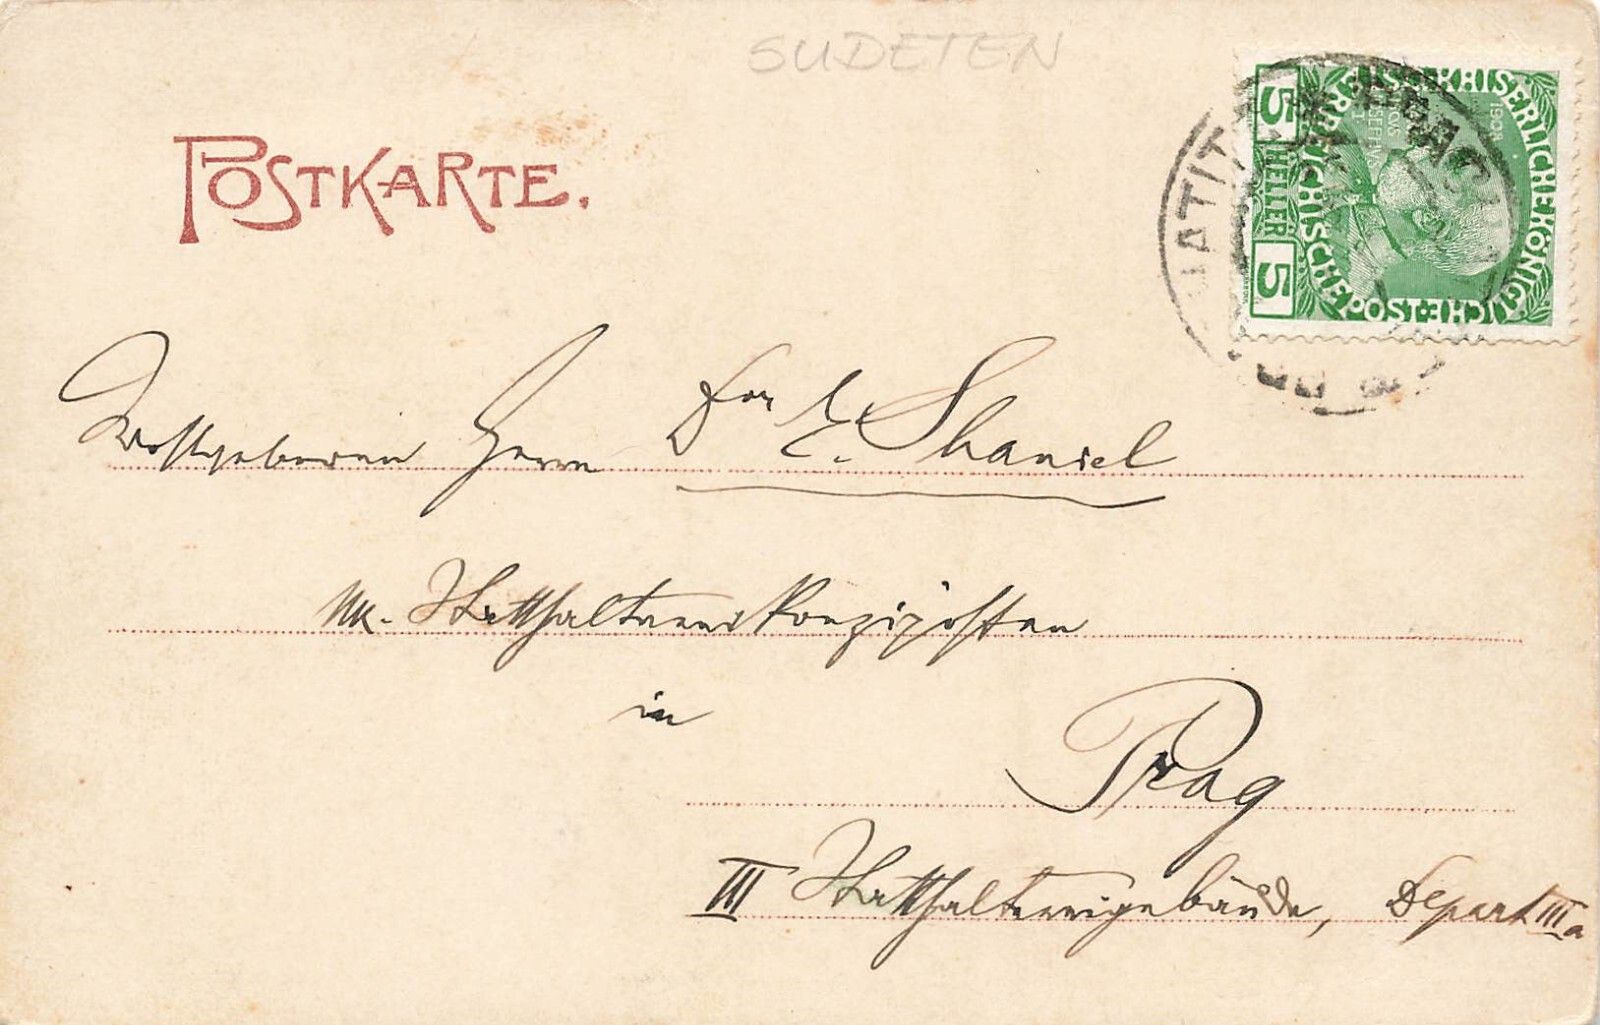 SUDETEN
POSTKARTE.
5 HELLER 5
KAISERLICHE KÖNIGLICHE
ÖSTERREICHISCHE POST
1908
Wohlgeboren Herrn Dor E. Shaniel
kk. Statthaltereikonzipisten
in
Prag
III Statthaltereigebäude, Depart IIIa